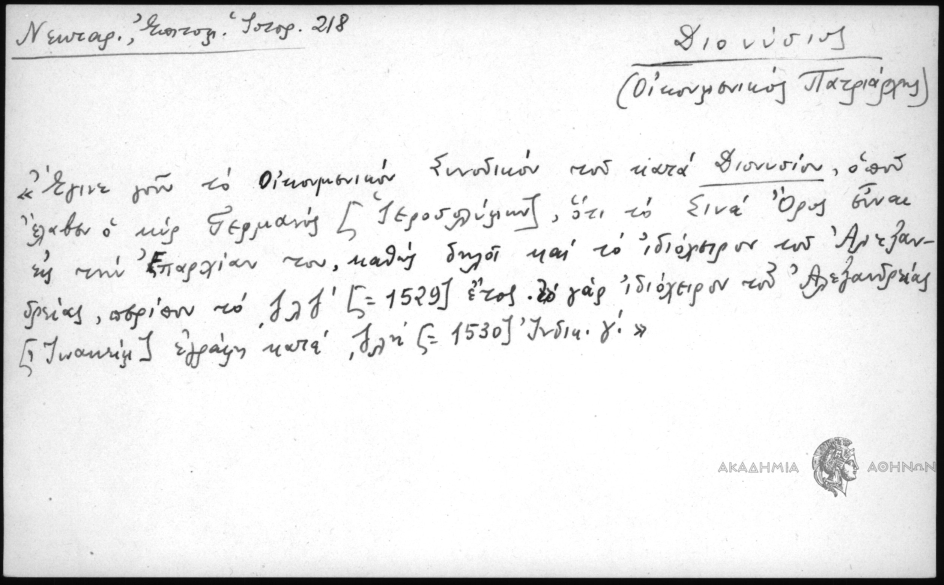 Νεκταρ., Ἐπιτομ. Ἱστορ. 218
Διονύσιος
(Οἰκουμενικός Πατριάρχης)
«Ἔγινε γοῦν τό Οἰκουμενικόν Συνοδικόν τοῦ κατά Διονυσίου, ὁποῦ
ἔλαβεν ὁ κύρ Γερμανός [Ἱεροσολύμων], ὅτι τό Σινά Ὄρος εἶναι
εἰς τήν Ἐπαρχίαν του, καθώς δηλοῖ καί τό ἰδιόχειρον τοῦ Ἀλεξαν-
δρείας, περίπου τό ͵ζλζ' [= 1529] ἔτος. τό γάρ ἰδιόχειρον τοῦ Ἀλεξανδρείας
[Ἰωακείμ] ἐγράφη κατά ͵ζλη [= 1530] Ἰνδικ. γ'.»
ΑΚΑΔΗΜΙΑ ΑΘΗΝΩΝ